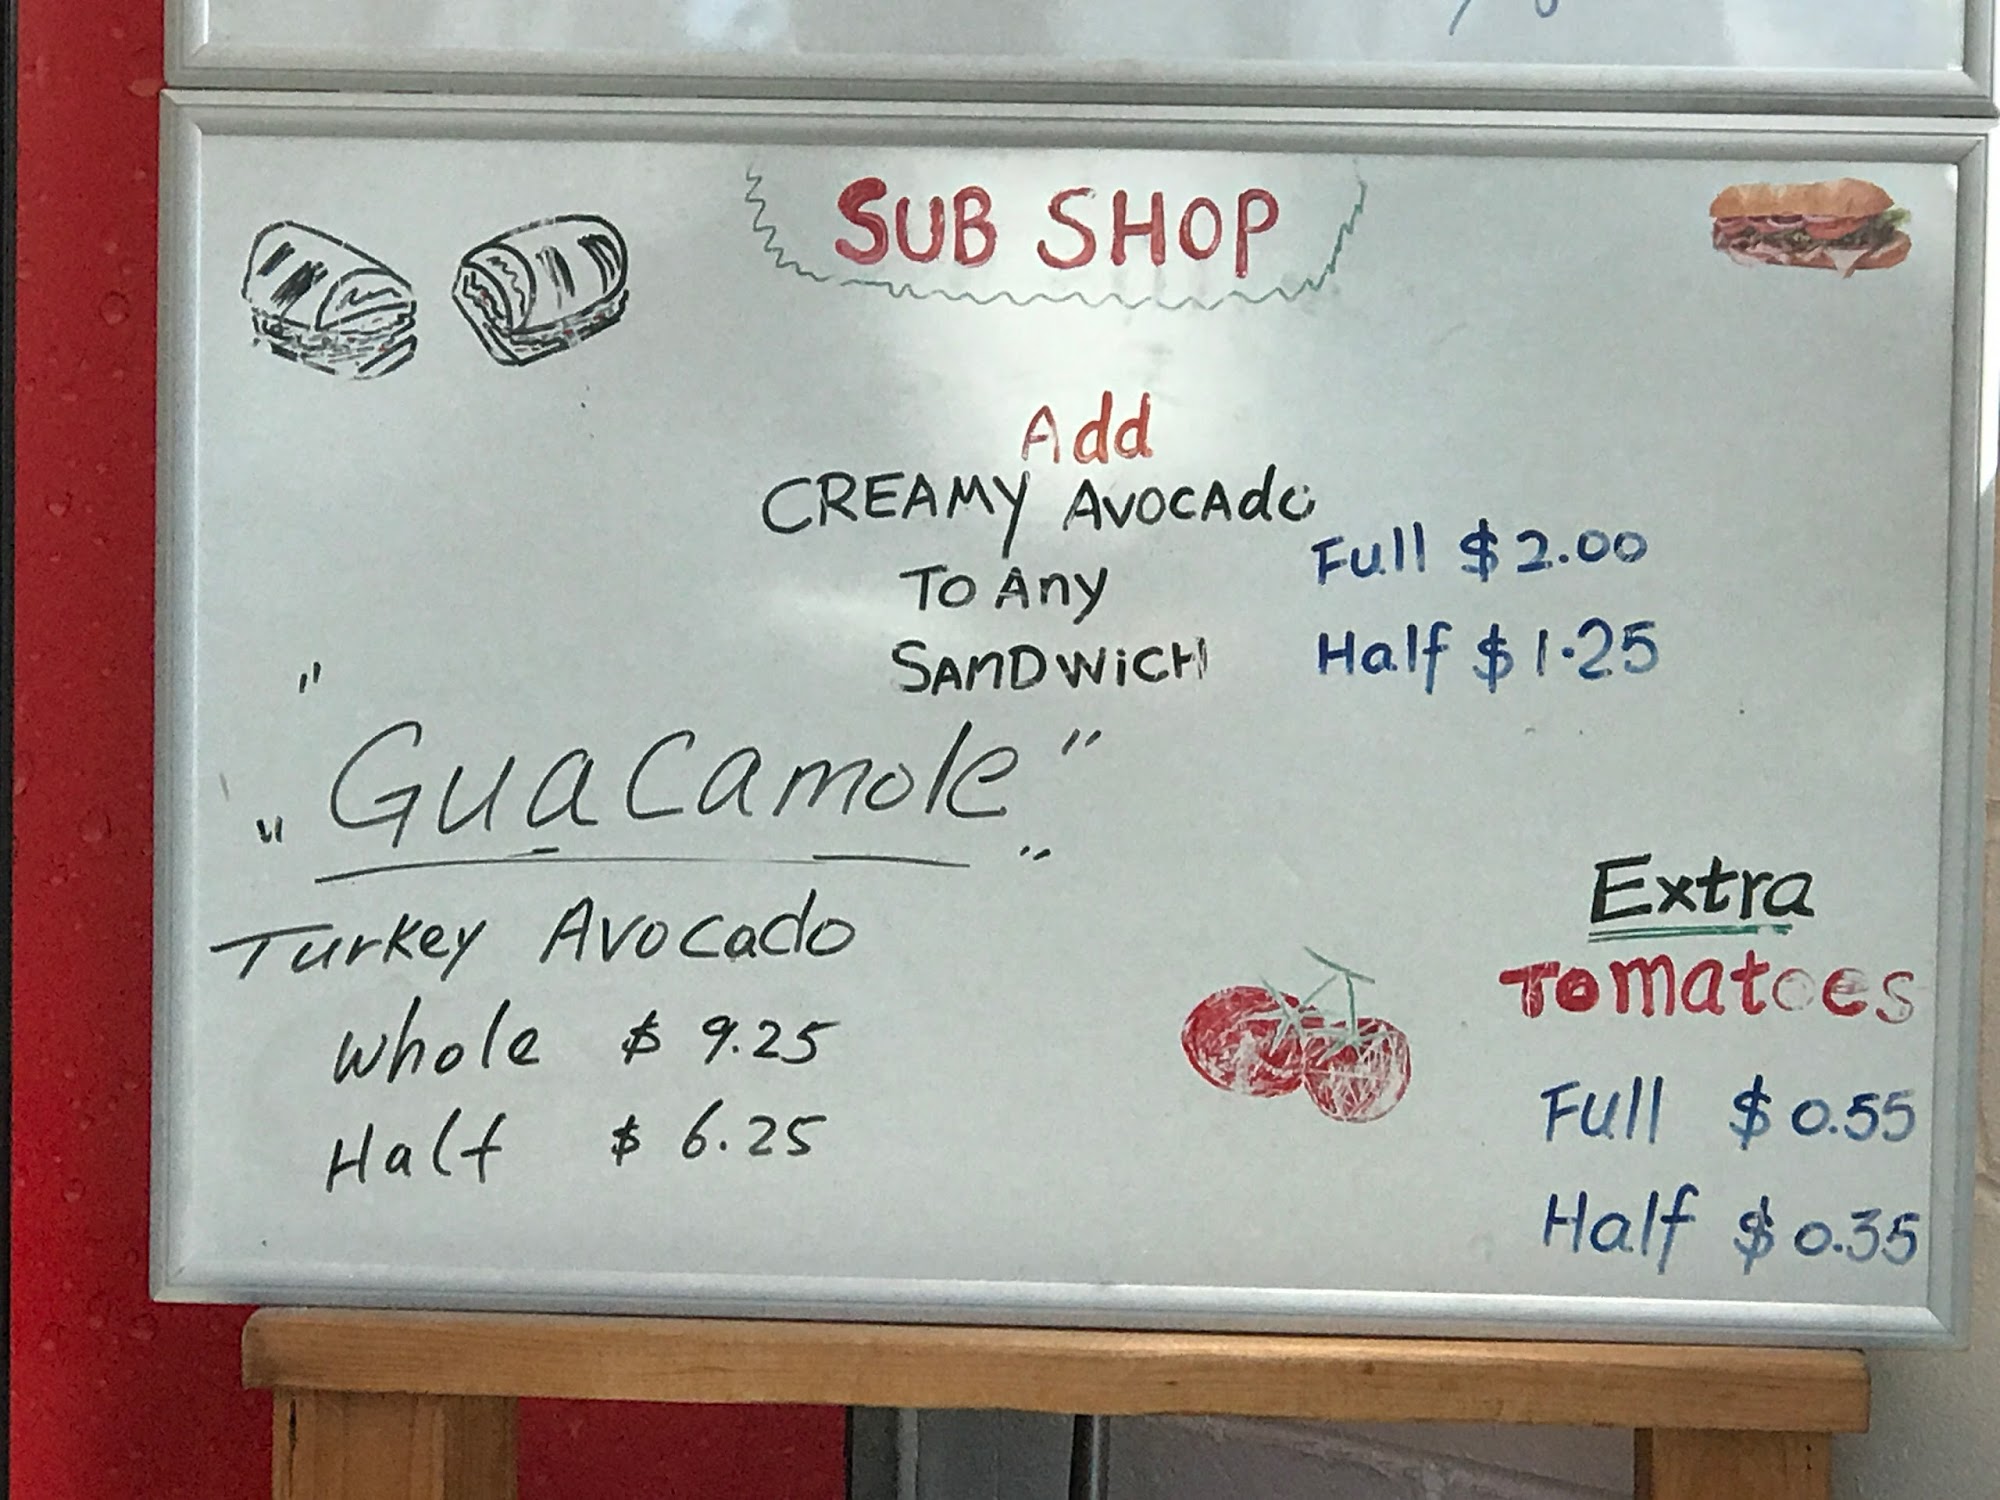 SUB SHOP
Add
CREAMY AVOCAdo
To Any
SANDWiCH
Full $2.00
Half $1.25
"Guacamole"
Turkey Avocado
Whole $ 9.25
Half $ 6.25
Extra
Tomatoes
Full $0.55
Half $0.35